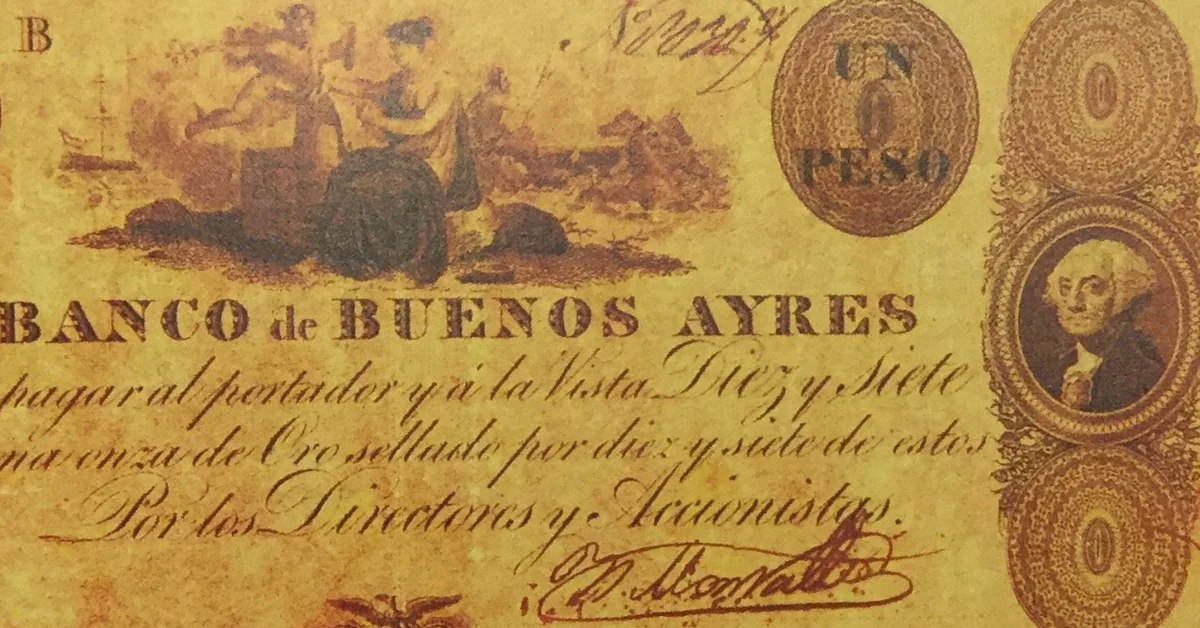 B
UN
0
PESO
0
BANCO de BUENOS AYRES
pagar al portador y á la Vista Diez y Siete
na onza de Oro sellado por diez y siete de estos
Por los Directores y Accionistas.
0